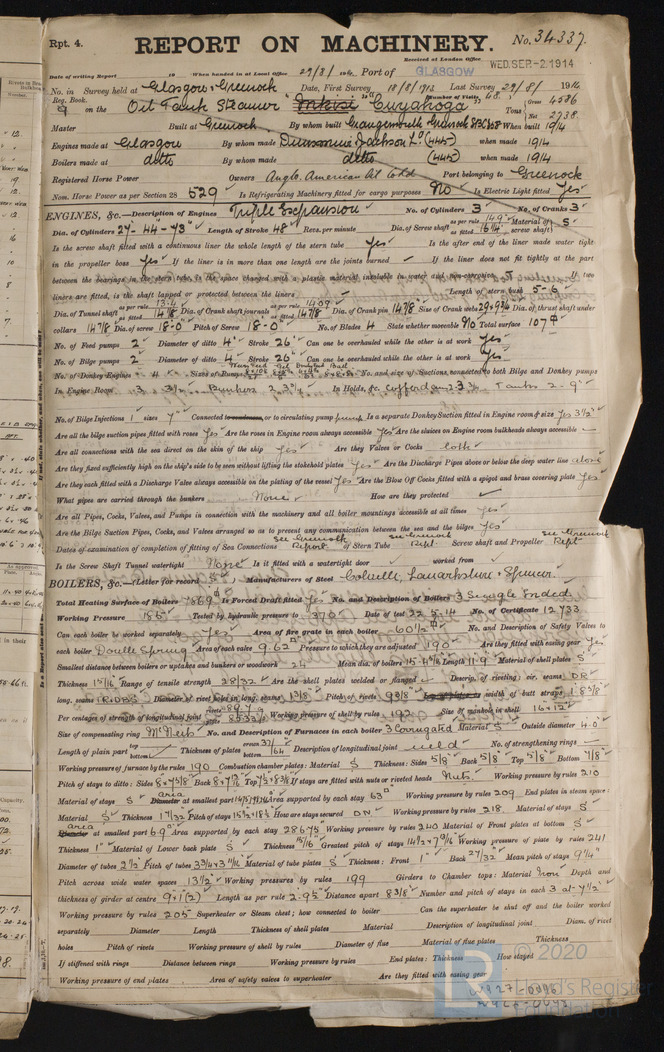 Rpt. 4.
REPORT ON MACHINERY.
No. 34337.
Received at London Office WED. SEP -2 . 1914
Date of writing Report 19 When handed in at Local Office 29/8/ 1914 Port of GLASGOW
No. in Survey held at Glasgow & Greenock Date, First Survey 18/8/1913 Last Survey 29/8/ 1914
Reg. Book. Number of Visits 68
9 on the Oil Tank Steamer "Inkisi" "Cuyahoga" Tons Gross 4586 Net 2738
Master Built at Greenock By whom built Grangemouth & Greenock When built 1914
Engines made at Glasgow By whom made Dunsmuir & Jackson Ld (445) when made 1914
Boilers made at ditto By whom made ditto (445) when made 1914
Registered Horse Power Owners Anglo American Oil Co Ltd Port belonging to Greenock
Nom. Horse Power as per Section 28 529 Is Refrigerating Machinery fitted for cargo purposes No Is Electric Light fitted Yes
ENGINES, &c.—Description of Engines Triple Expansion No. of Cylinders 3 No. of Cranks 3
Dia. of Cylinders 27-44-73 Length of Stroke 48 Revs. per minute Dia. of Screw shaft as per rule 14.9 as fitted 16 1/4 Material of screw shaft S
Is the screw shaft fitted with a continuous liner the whole length of the stern tube Yes Is the after end of the liner made water tight
in the propeller boss Yes If the liner is in more than one length are the joints burned If the liner does not fit tightly at the part
between the bearings in the stern tube, is the space charged with a plastic material insoluble in water and non-corrosive If two
liners are fitted, is the shaft lapped or protected between the liners Length of stern bush 5-6
Dia. of Tunnel shaft as per rule 13.4 as fitted 14 7/8 Dia. of Crank shaft journals as per rule 14.09 as fitted 14 7/8 Dia. of Crank pin 14 7/8 Size of Crank webs 29 x 9 3/8 Dia. of thrust shaft under
collars 14 7/8 Dia. of screw 18-0 Pitch of Screw 18-0 No. of Blades 4 State whether moveable No Total surface 107
No. of Feed pumps 2 Diameter of ditto 4 Stroke 26 Can one be overhauled while the other is at work Yes
No. of Bilge pumps 2 Diameter of ditto 4 Stroke 26 Can one be overhauled while the other is at work Yes
No. of Donkey Engines 4 Sizes of Pumps No. and size of Suctions connected to both Bilge and Donkey pumps
In Engine Room 3 3 1/2 Bunkers 2. 3 1/2 In Holds, &c. Cofferdam 2-3 Tanks 2-9
No. of Bilge Injections 1 sizes 7 Connected to condenser, or to circulating pump pump Is a separate Donkey Suction fitted in Engine room & size Yes 3 1/2
Are all the bilge suction pipes fitted with roses Yes Are the roses in Engine room always accessible Yes Are the sluices on Engine room bulkheads always accessible
Are all connections with the sea direct on the skin of the ship Yes Are they Valves or Cocks both
Are they fixed sufficiently high on the ship's side to be seen without lifting the stokehold plates Yes Are the Discharge Pipes above or below the deep water line above
Are they each fitted with a Discharge Valve always accessible on the plating of the vessel Yes Are the Blow Off Cocks fitted with a spigot and brass covering plate Yes
What pipes are carried through the bunkers None How are they protected
Are all Pipes, Cocks, Valves, and Pumps in connection with the machinery and all boiler mountings accessible at all times Yes
Are the Bilge Suction Pipes, Cocks, and Valves arranged so as to prevent any communication between the sea and the bilges Yes
Dates of examination of completion of fitting of Sea Connections see Greenock Report of Stern Tube see Greenock Rept Screw shaft and Propeller see Greenock Rept
Is the Screw Shaft Tunnel watertight None Is it fitted with a watertight door worked from
BOILERS, &c.—(Letter for record S) Manufacturers of Steel Colville, Lanarkshire & Spencer.
Total Heating Surface of Boilers 7869 Is Forced Draft fitted Yes No. and Description of Boilers 3 Single Ended
Working Pressure 185 Tested by hydraulic pressure to 370 Date of test 22.5.14 No. of Certificate 12733
Can each boiler be worked separately Yes Area of fire grate in each boiler 60 1/2 No. and Description of Safety Valves to
each boiler Double Spring Area of each valve 9.62 Pressure to which they are adjusted 190 Are they fitted with easing gear Yes
Smallest distance between boilers or uptakes and bunkers or woodwork 24 Mean dia. of boilers 15-4 Length 11-9 Material of shell plates S
Thickness 1 5/16 Range of tensile strength 28/32 Are the shell plates welded or flanged Descrip. of riveting: cir. seams DR
long. seams TRDBS Diameter of rivet holes in long. seams 1 3/8 Pitch of rivets 9 3/8 Lap of plates or width of butt straps 1-8 5/8
Per centages of strength of longitudinal joint Working pressure of shell by rules 192 Size of manhole in shell 16 x 12
Size of compensating ring McNeils No. and Description of Furnaces in each boiler 3 Corrugated Material S Outside diameter 4-0
Length of plain part top bottom Thickness of plates crown bottom 37/64 Description of longitudinal joint weld No. of strengthening rings
Working pressure of furnace by the rules 190 Combustion chamber plates: Material S Thickness: Sides 5/8 Back 5/8 Top 5/8 Bottom 7/8
Pitch of stays to ditto: Sides 8 x 7 5/8 Back 8 x 7 7/8 Top 7 1/2 x 8 3/8 If stays are fitted with nuts or riveted heads Nuts. Working pressure by rules 210
Material of stays S Diameter area at smallest part Area supported by each stay 63 Working pressure by rules 209 End plates in steam space:
Material S Thickness 1 7/32 Pitch of stays 15 1/2 x 18 1/2 How are stays secured DN Working pressure by rules 218 Material of stays S
Diameter area at smallest part 6.9 Area supported by each stay 286.75 Working pressure by rules 240 Material of Front plates at bottom S
Thickness 1 Material of Lower back plate S Thickness 15/16 Greatest pitch of stays 14 1/2 x 7 13/16 Working pressure of plate by rules 241
Diameter of tubes 2 1/2 Pitch of tubes 3 3/4 x 3 11/16 Material of tube plates S Thickness: Front 1 Back 27/32 Mean pitch of stays 9 1/4
Pitch across wide water spaces 13 1/2 Working pressures by rules 199 Girders to Chamber tops: Material Iron Depth and
thickness of girder at centre 9 x 1 (2) Length as per rule 2-95 Distance apart 8 3/8 Number and pitch of stays in each 3 at 7 1/2
Working pressure by rules 205 Superheater or Steam chest; how connected to boiler Can the superheater be shut off and the boiler worked
separately Diameter Length Thickness of shell plates Material Description of longitudinal joint Diam. of rivet
holes Pitch of rivets Working pressure of shell by rules Diameter of flue Material of flue plates Thickness
If stiffened with rings Distance between rings Working pressure by rules End plates: Thickness How stayed
Working pressure of end plates Area of safety valves to superheater Are they fitted with easing gear
© 2020
Lloyd's Register
Foundation
W927-0046